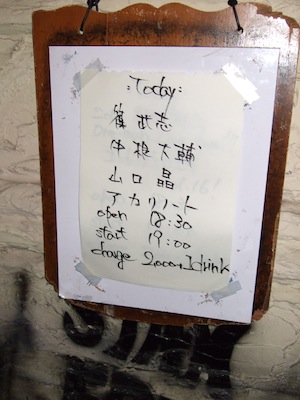 :Today:
篠武志
中根大輔
山口晶
アカリノート
open 18:30
start 19:00
charge 2,000+1drink